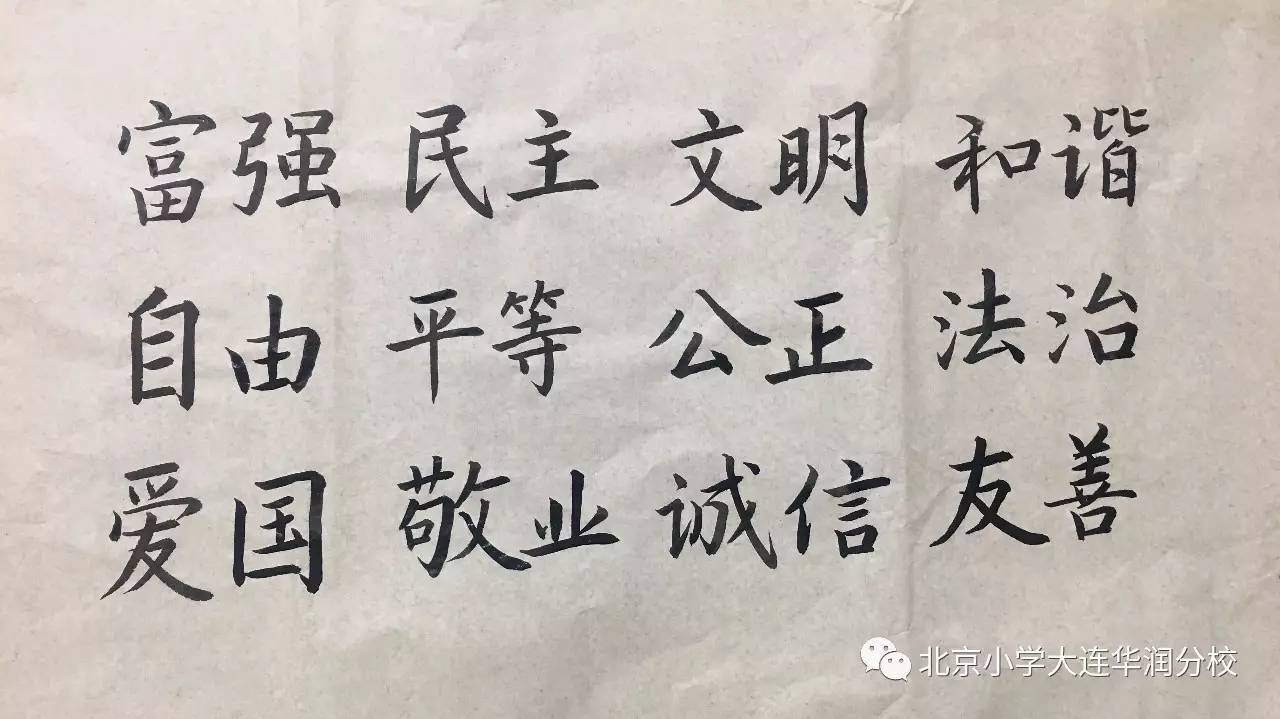 富强 民主 文明 和谐
自由 平等 公正 法治
爱国 敬业 诚信 友善
北京小学大连华润分校